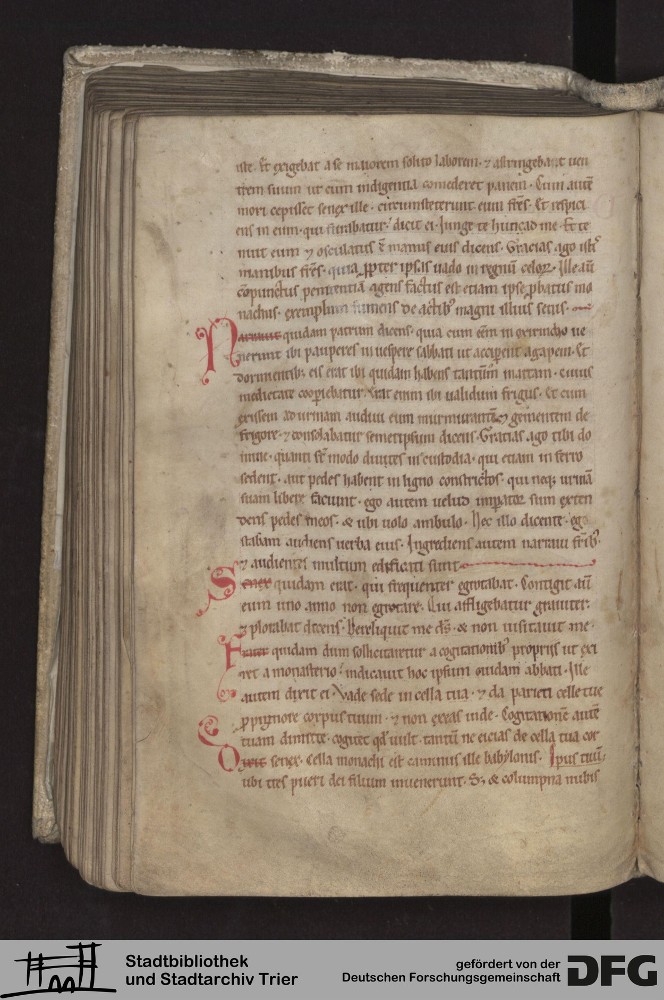 ille. Et exigebat a se maiorem solito laborem. ⁊ astringebat uen
trem suum ut cum indigentia comederet panem. Cum autē
mori cepisset senex ille. circumsteterunt eum fr̄s. Et respici
ens in eum. qui furabatur. dicit ei. Iunge te huc ad me. Et te
nuit eum ⁊ osculatus ē manus eius dicens. Gracias ago istis
manibus fr̄s. quia ꝓpter ipsas uado in regnū celoꝝ. Ille aū
cōpunctus penitentia agens factus est etiam ipse ꝓbatus mo
nachus. exemplum sumens de actib; magni illius senis.
Narrauit quidam patrum dicens. quia cum eēm in oxirincho ue
nerunt ibi pauperes in uespere sabbati ut acciperent agapem. Et
dormientib; eis erat ibi quidam habens tantūm mattam. cuius
medietate cooꝑiebatur. Erat enim ibi ualidum frigus. Et cum
exissem ad urinam audiui eum murmurantē ⁊ gementem de
frigore. ⁊ consolabatur semetipsum dicens. Gracias ago tibi do
mine. quanti sr̄ modo diuites in custodia. qui etiam in ferro
sedent. aut pedes habent in ligno constrictos. qui neq; urinā
suam libere faciunt. ego autem velud imꝑator sum exten
dens pedes meos. & ubi uolo ambulo. Hec illo dicente. ego
stabam audiens uerba eius. Ingrediens autem narraui fr̄ib;
⁊ audientes multum edificati sunt
Senex quidam erat. qui frequenter egrotabat. Contigit aū
eum uno anno non egrotare. Qui affligebatur grauiter.
⁊ plorabat dicens. Dereliquit me dn̄s. & non uisitauit me.
Frater quidam dum sollicitaretur a cogitationib; proprijs ut exi
ret a monasterio. indicauit hoc ipsum cuidam abbati. Ille
autem dixit ei. Vade sede in cella tua. ⁊ da parieti celle tue
ꝓ pignore corpus tuum. ⁊ non exeas inde. Cogitationē autē
tuam dimitte. cogitet qd̄ uult. tantū ne eicias de cella tua cor
Dixit senex. Cella monachi est caminus ille babylonis. Ipus tuū.
ubi tres pueri dei filium inuenerunt. S; & columpna nubis
Stadtbibliothek
und Stadtarchiv Trier
gefördert von der
Deutschen Forschungsgemeinschaft
DFG